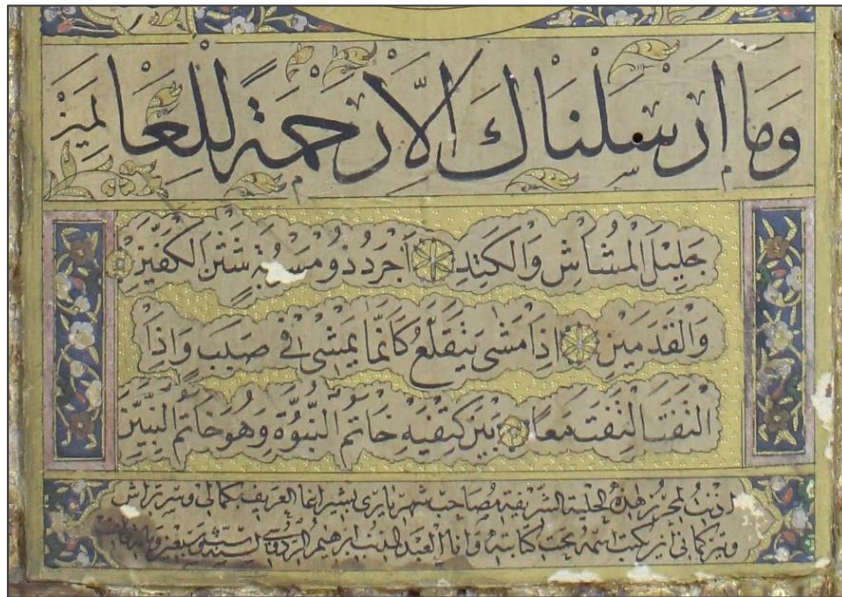 وَمَا اَرْسَلْنَاكَ اِلَّا رَحْمَةً لِلْعَالَمِيْنَ
جَلِيْلَ الْمُشَاشِ وَالْكَتِدِ اَجْرَدُ ذُو مَسْرُبَةٍ شَثْنَ الْكَفَّيْنِ
وَالْقَدَمَيْنِ اِذَا مَشٰى يَتَقَلَّعُ كَاَنَّمَا يَمْشٖى فٖى صَبَبٍ وَاِذَا
الْتَفَتَ الْتَفَتَ مَعًا بَيْنَ كِتْفَيْهِ خَاتَمُ النُّبُوَّةِ وَهُوَ خَاتَمُ النَّبِيّٖنَ
اذنت لمحرر هذه الحلية الشريفة مصاحب شهرياري بشير اغا العريف بكمالي وسرتراش
اسمه تحت كتابته وانا العبد المذنب ابرهيم الردوسي